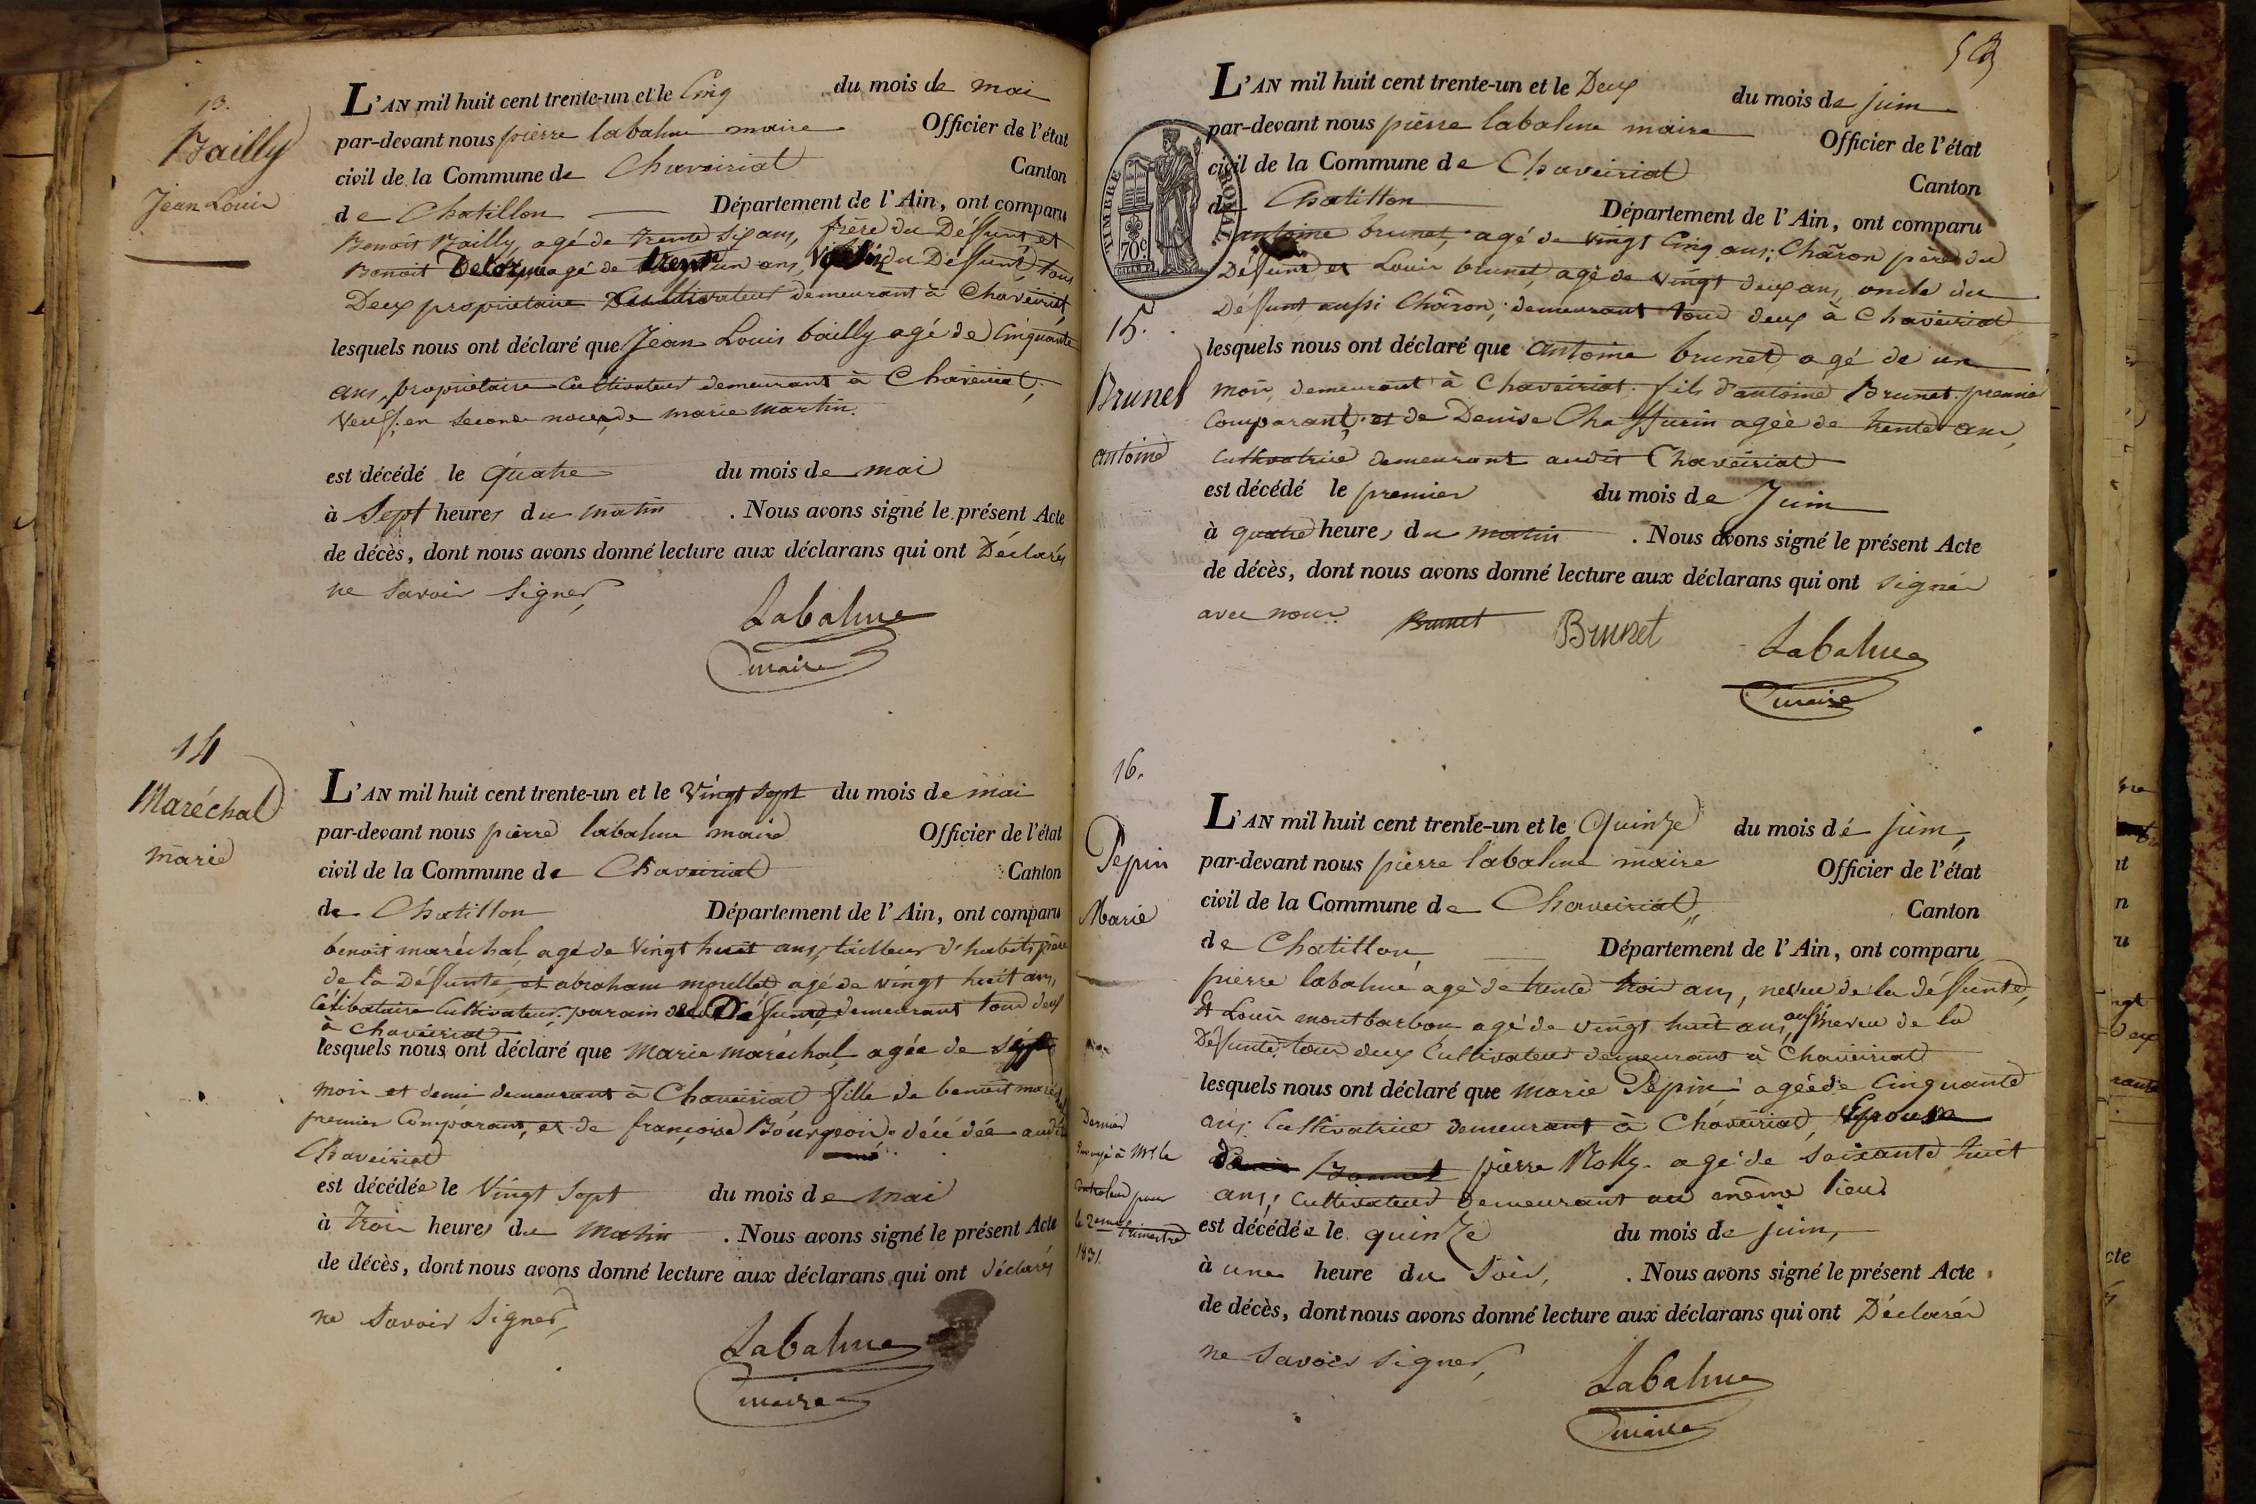 13.
Bailly
Jean Louis
L'AN mil huit cent trente-un et le Cinq du mois de mai
par-devant nous pierre labalme maire Officier de l'état
civil de la Commune de Chaveiriat Canton
de Chatillon Département de l'Ain, ont comparu
Benoit Bailly, agé de trente six ans, frère du Défunt et
Benoit Delorme agé de trente un ans, voisin du Défunt, tous
Deux propriétaire Cultivateurs demeurant à Chaveiriat,
lesquels nous ont déclaré que Jean Louis bailly agé de Cinquante
ans, propriétaire Cultivateur demeurant à Chaveiriat,
Veuf, en seconde noces, de marie martin.
est décédé le quatre du mois de mai
à Sept heures du matin . Nous avons signé le présent Acte
de décès, dont nous avons donné lecture aux déclarans qui ont Déclarés
ne savoir signer,
Labalme
maire
14
Maréchal
marie
L'AN mil huit cent trente-un et le Vingt sept du mois de mai
par-devant nous pierre labalme maire Officier de l'état
civil de la Commune de Chaveiriat Canton
de Chatillon Département de l'Ain, ont comparu
benoit maréchal, agé de Vingt huit ans, tailleur d'habits, père
de la Défunte, et abraham agé de vingt huit ans,
Célibataire Cultivateur, parain de la Défunte, demeurant tous deux
à Chaveiriat
lesquels nous ont déclaré que Marie maréchal, agée de sept
mois et demi demeurant à Chaveiriat fille de benoit maréchal
premier Comparant, et de françoise Bourgeois. décédée audit
Chaveiriat
est décédée le Vingt sept du mois de mai
à trois heures du matin . Nous avons signé le présent Acte
de décès, dont nous avons donné lecture aux déclarans qui ont déclarés
ne savoir signer,
Labalme
maire
TIMBRE ROYAL
70c
15.
Brunet
antoine
L'AN mil huit cent trente-un et le Deux du mois de juin
par-devant nous pierre labalme maire Officier de l'état
civil de la Commune de Chaveiriat Canton
de Chatillon Département de l'Ain, ont comparu
antoine brunet, agé de vingt Cinq ans, Charon père du
Défunt et Louis brunet, agé de vingt deux ans, oncle du
Défunt aussi Charon, demeurant tous deux à Chaveiriat
lesquels nous ont déclaré que antoine brunet, agé de un
mois, demeurant à Chaveiriat. fils d'antoine Brunet. premier
Comparant, et de Denise Chaffurin agée de trente ans,
Cultivatrice demeurant audit Chaveiriat
est décédé le premier du mois de Juin
à quatre heures du matin . Nous avons signé le présent Acte
de décès, dont nous avons donné lecture aux déclarans qui ont signés
avec nous. Brunet Brunet Labalme
maire
16.
Pepin
Marie
Dernier
envoyé à Mr le
pour
le 2eme trimestre
1831.
L'AN mil huit cent trente-un et le Quinze du mois de juin,
par-devant nous pierre labalme maire Officier de l'état
civil de la Commune de Chaveiriat, Canton
de Chatillon, Département de l'Ain, ont comparu
pierre labalme agé de trente trois ans, neveu de la défunte,
et Louis montbarbon agé de vingt huit ans, aussi neveu de la
Défunte, tous deux Cultivateurs demeurant à Chaveiriat
lesquels nous ont déclaré que marie Pepin agée de Cinquante
ans, Cultivatrice demeurant à Chaveiriat, Epouse
pierre agé de soixante huit
ans, Cultivateur demeurant au même lieu
est décédée le quinze du mois de juin,
à une heure du Soir, . Nous avons signé le présent Acte
de décès, dont nous avons donné lecture aux déclarans qui ont Déclarés
ne savoir signer,
Labalme
maire